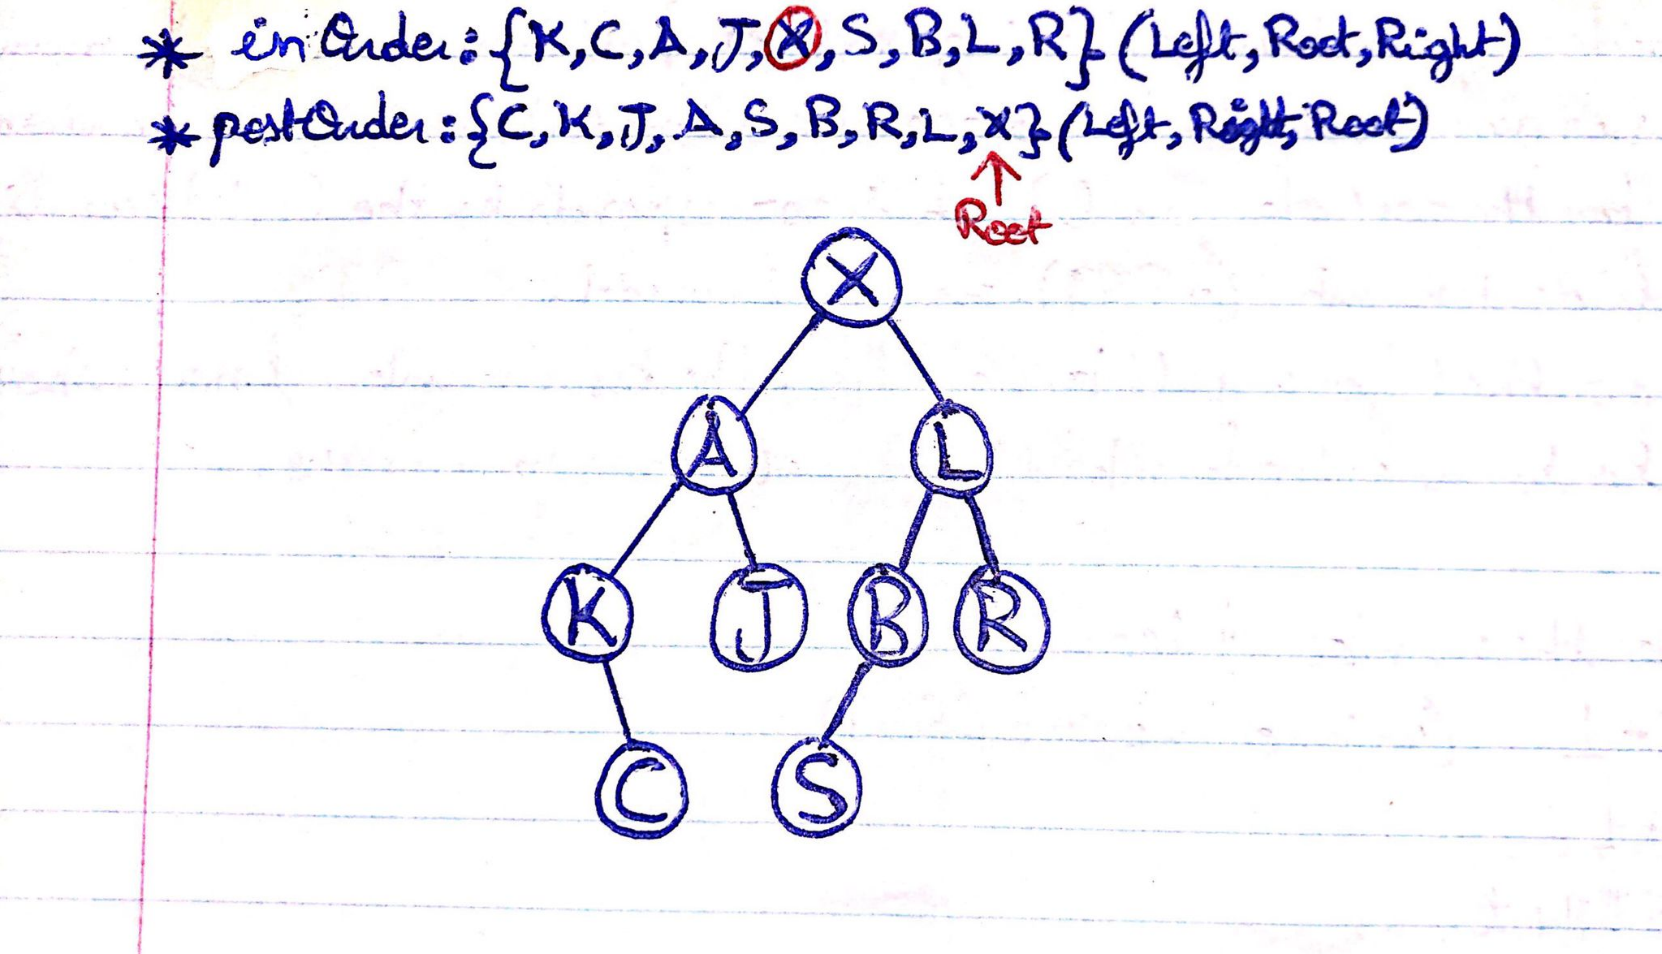 * inOrder: {K, C, A, J, X, S, B, L, R} (Left, Root, Right)
* postOrder: {C, K, J, A, S, B, R, L, X} (Left, Right, Root)
Root
X
A L
K J B R
C S